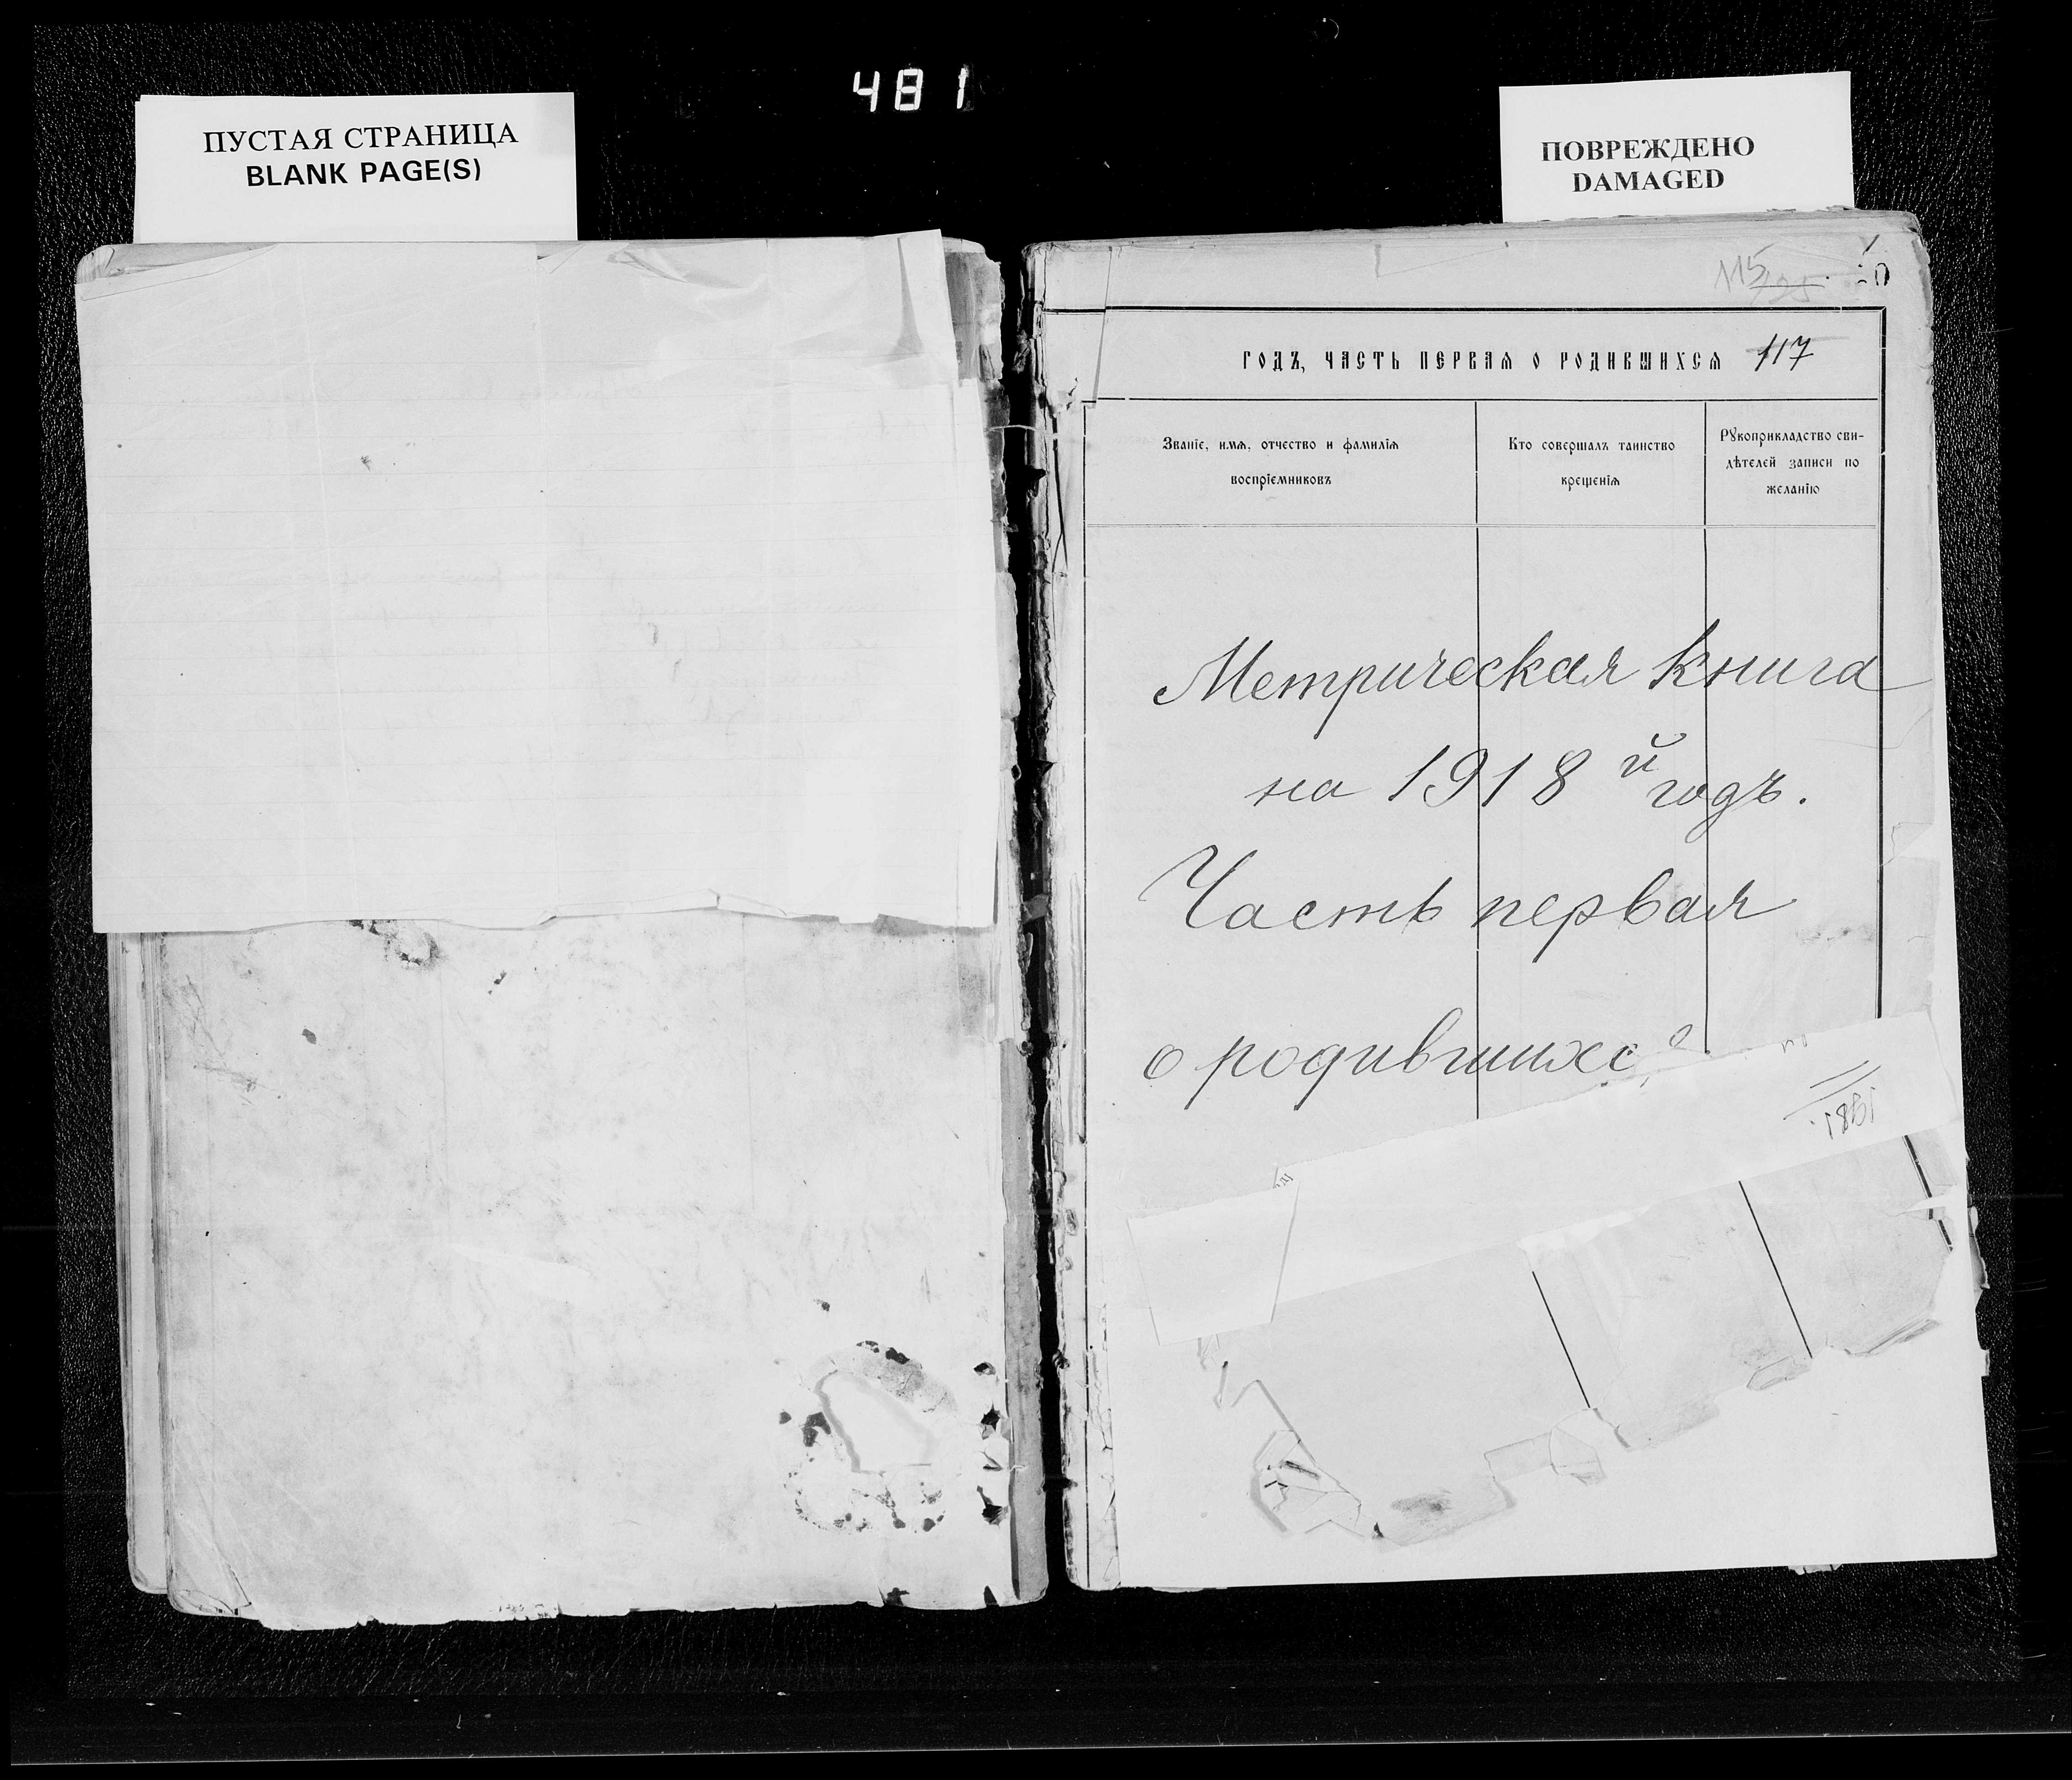 481
ПУСТАЯ СТРАНИЦА
BLANK PAGE(S)
ПОВРЕЖДЕНО
DAMAGED
115
годъ, часть первая о родившихся 117
Званіе, имя, отчество и фамилія
воспріемниковъ
Кто совершалъ таинство
крещенія
Рукоприкладство сви-
дѣтелей записи по
желанію
Метрическая книга
на 1918 й годъ.
Часть первая
о родившихс